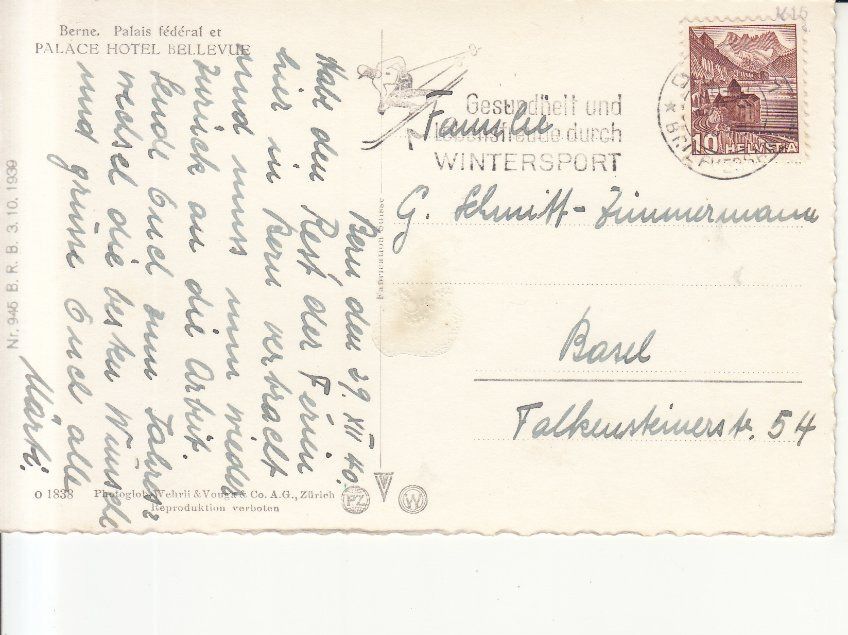 Berne. Palais fédéral et
PALACE HOTEL BELLEVUE
Bern den 29. XII 40.
Habe den Rest der Ferien
hier in Bern verbracht
und muss nun wieder
zurück an die Arbeit.
Sende Euch zum Jahres=
wechsel die besten Wünsche
und grüsse Euch alle
Märti.
Nr. 945 B. R. B. 3. 10. 1939
o 1838 Photoglob-Wehrli & Vouga & Co. A.G., Zürich
Reproduktion verboten
PZ
W
Fabrication Suisse
Gesundheit und
Lebensfreude durch
WINTERSPORT
10 HELVETIA
Familie
G. Schmitt-Zimmermann
Basel
Falkensteinerstr. 54